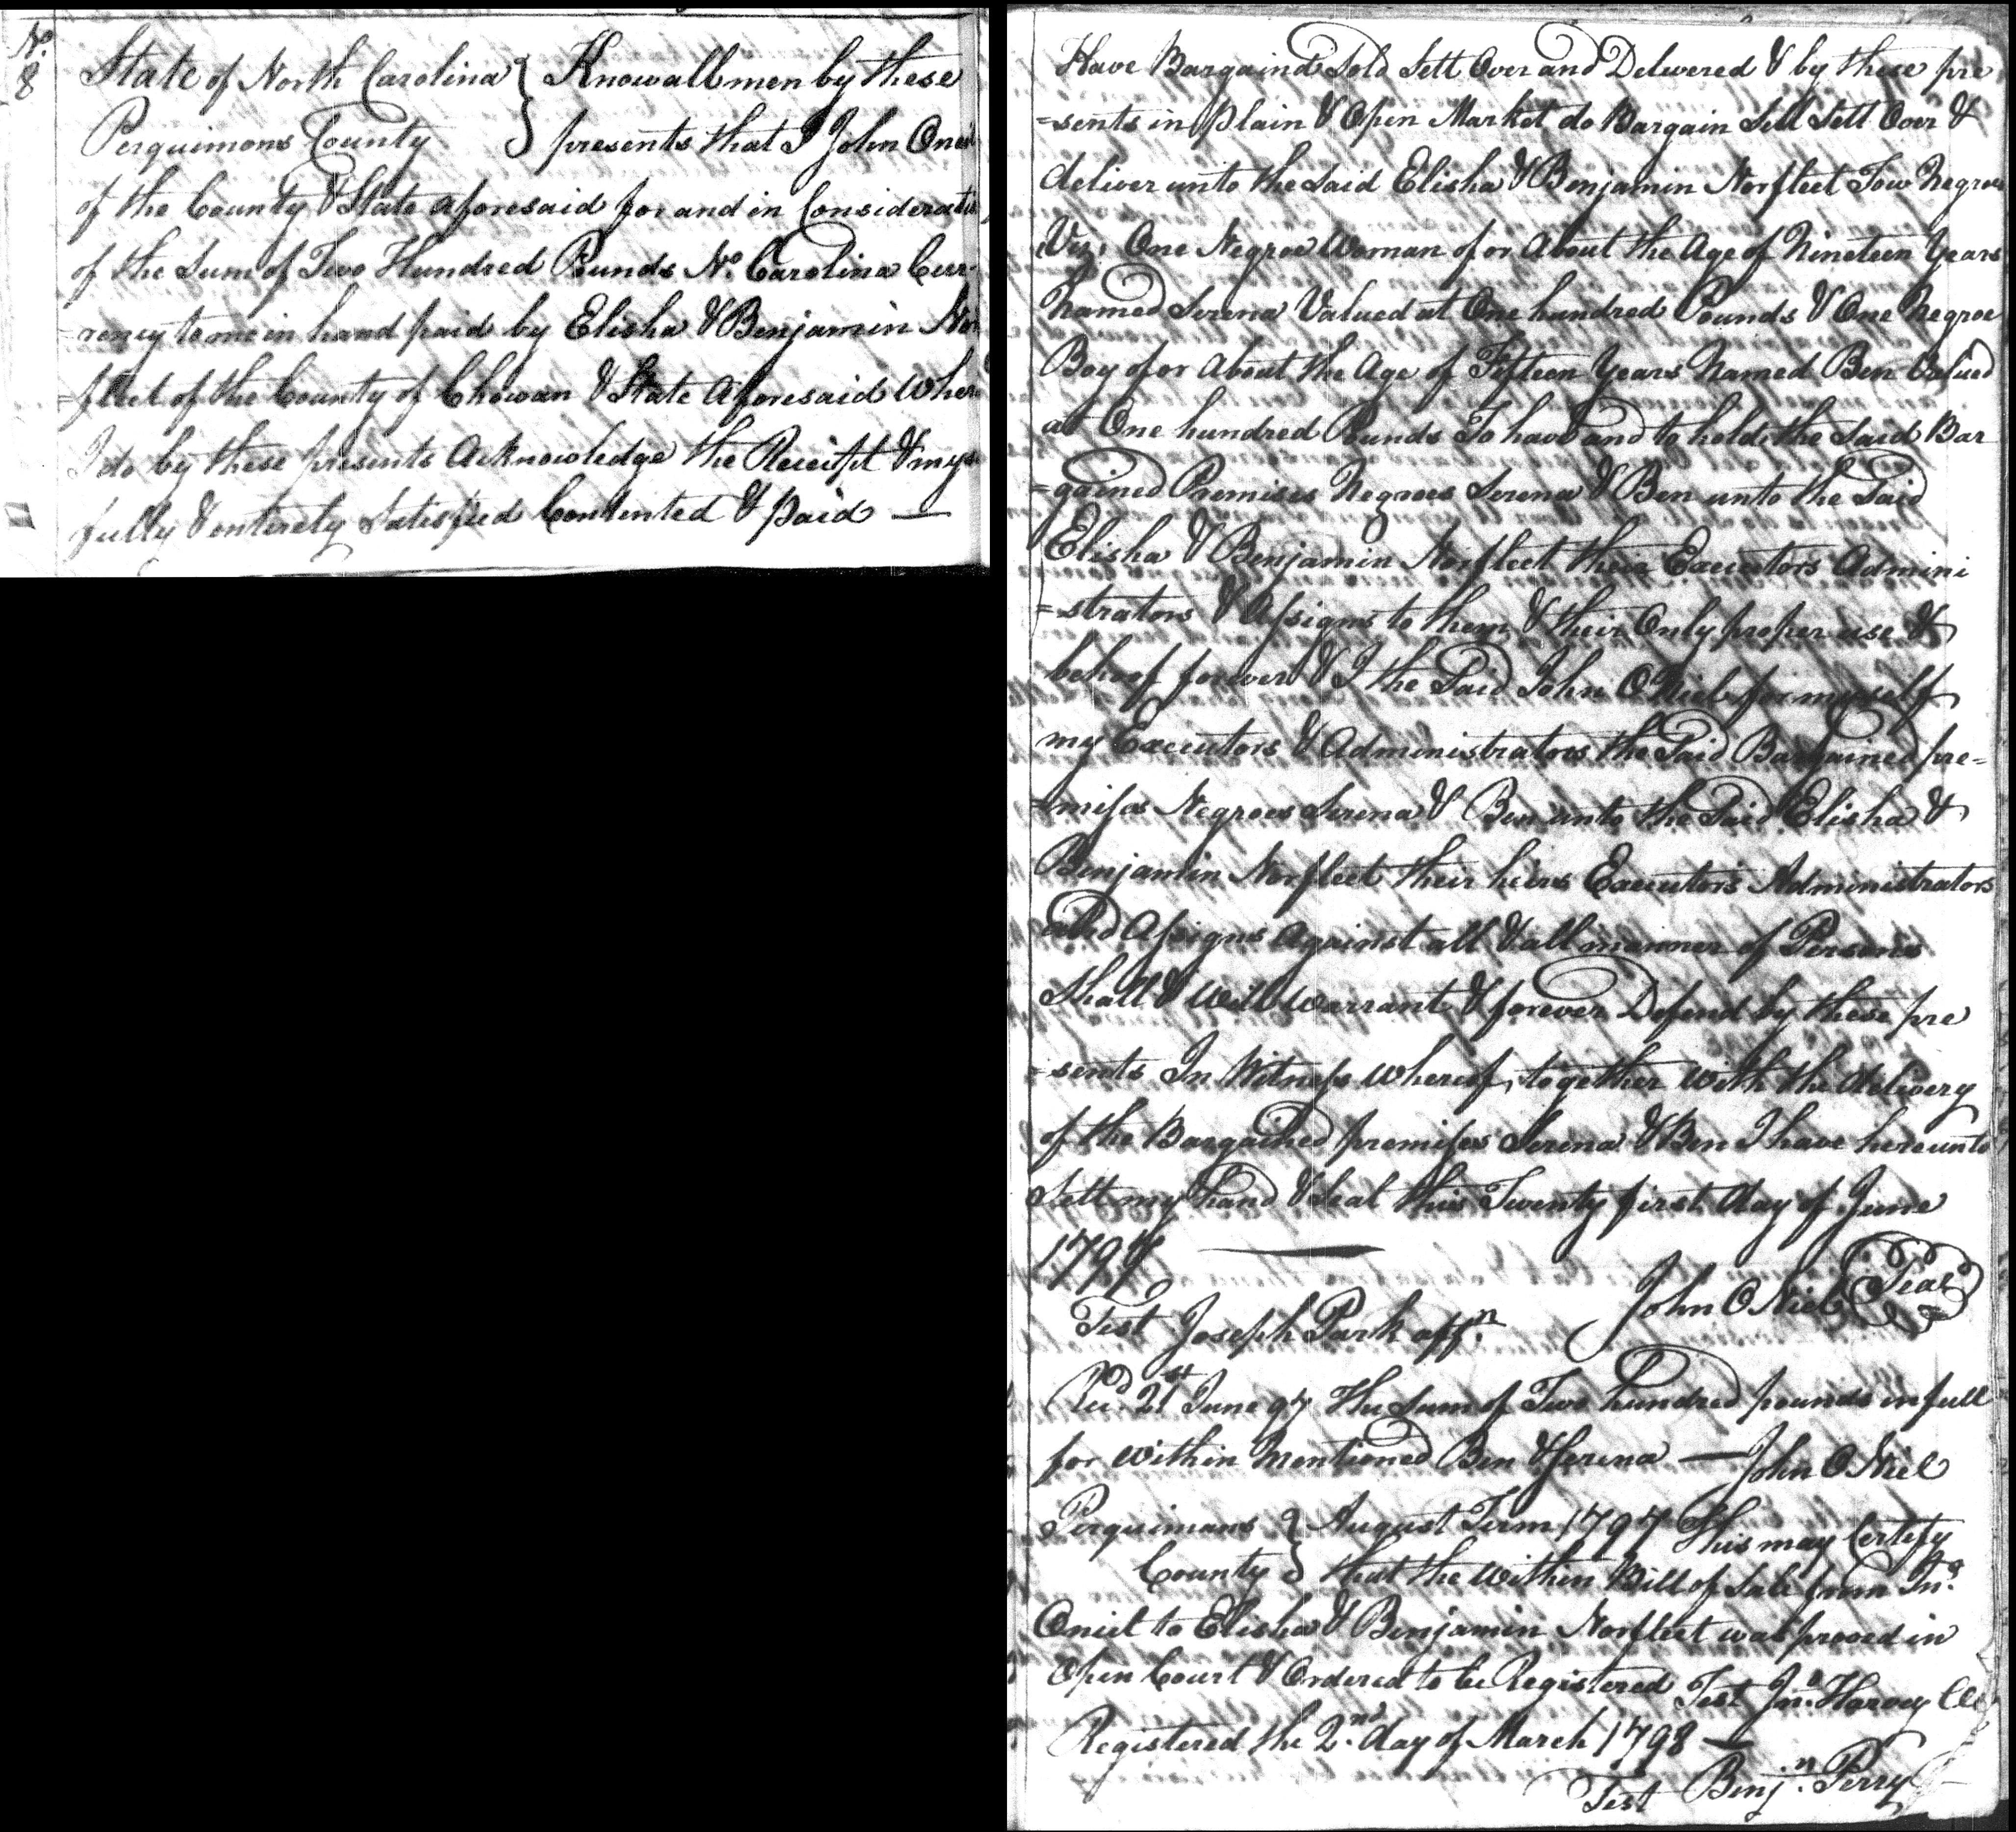 No.
8
State of North Carolina } Know all men by these
Perquimons County } presents that I John One
of the County & State aforesaid for and in Considerati
of the Sum of Two Hundred Pounds No. Carolina Curr-
=rency to me in hand paid by Elisha & Benjamin Nor
=fleet of the County of Chowan & State Aforesaid Where
I do by these presents Acknowledge the Receipt & myse
fully & entirely Satisfied Contented & paid —
Have Bargaind Sold Sett Over and Delivered & by these pre
=sents in plain & Open Market do Bargain Sell Sett Over &
deliver unto the Said Elisha & Benjamin Norfleet Tow Negroes
Viz. One Negroe Woman of or About the Age of Nineteen Years
Named Serena Valued at One hundred Pounds & One Negroe
Boy of or About the Age of Fifteen Years Named Ben Valued
at One hundred Pounds To have and to hold the Said Bar
=gained Premises Negroes Serena & Ben unto the Said
Elisha & Benjamin Norfleet their Executors Admini
=strators & Assigns to them & their Only proper use &
behoof forever & I the Said John O Niel for myself
my Executors & Administrators the Said Bargained pre=
=mises Negroes Serena & Ben unto the Said Elisha &
Benjamin Norfleet their heirs Executors Administrators
and Assigns Against all & all manner of Persons
Shall & Will Warrant & forever Defend by these pre
=sents In Witness whereof, together with the delivery
of the Bargained premises Serena & Ben I have hereunto
Sett my hand & Seal this Twenty first day of June
1797 —
John O Niel Seal
Test Joseph Park affn.
Recd. 21st June 97 The Sum of Two hundred pounds in full
for within Mentioned Ben & Serena — John O Niel
Perquimans } August Term 1797 This may Certify
County } that the within Bill of Sale from Jno.
Oniel to Elisha & Benjamin Norfleet was proved in
Open Court & Ordered to be Registered Test Jno. Harvey Clk
Registered the 2nd. day of March 1798 —
Test Benjn. Perry